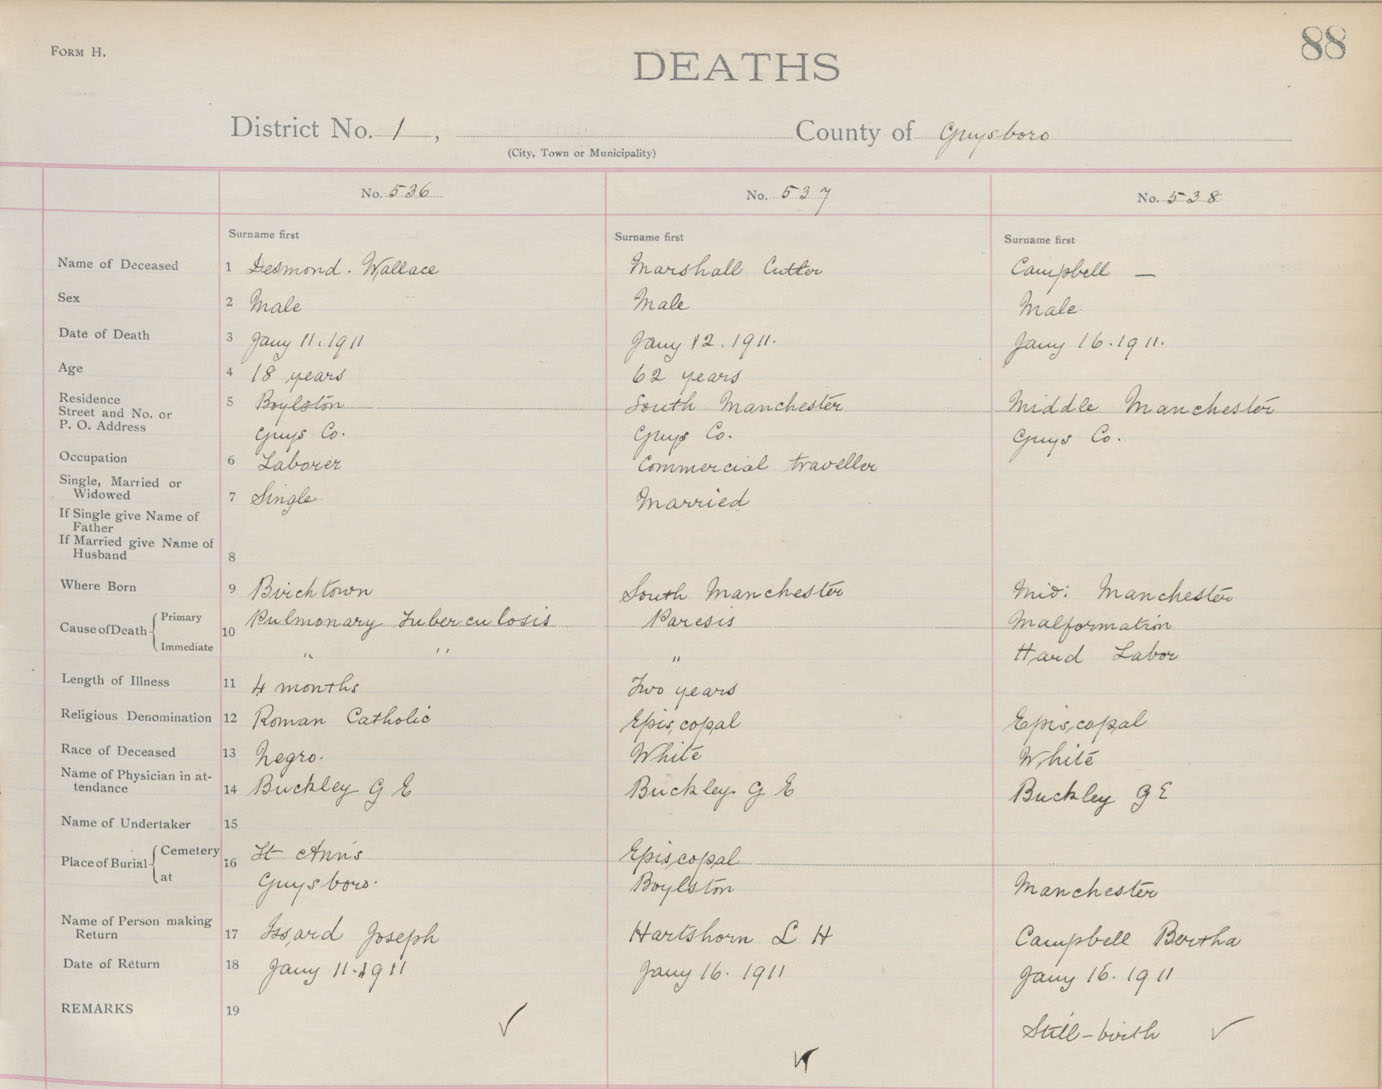 FORM H.
88
DEATHS
District No. 1, County of Guysboro
(City, Town or Municipality)
No. 536 No. 537 No. 538
Surname first Surname first Surname first
Name of Deceased 1 Desmond. Wallace Marshall Cutter Campbell —
Sex 2 Male Male Male
Date of Death 3 Jany 11. 1911 Jany 12. 1911. Jany 16. 1911.
Age 4 18 years 62 years
Residence
Street and No. or
P. O. Address 5 Boylston South Manchester Middle Manchester
Guys Co. Guys Co. Guys Co.
Occupation 6 Laborer Commercial traveller
Single, Married or
Widowed 7 Single Married
If Single give Name of
Father
If Married give Name of
Husband 8
Where Born 9 Birchtown South Manchester Mid: Manchester
Cause of Death Primary 10 Pulmonary Tuberculosis Paresis Malformation
Immediate " " " Hard Labor
Length of Illness 11 4 months Two years
Religious Denomination 12 Roman Catholic Episcopal Episcopal
Race of Deceased 13 Negro. White White
Name of Physician in at-
tendance 14 Buckley G E Buckley G E Buckley G E
Name of Undertaker 15
Place of Burial Cemetery 16 St Ann's Episcopal
at Guysboro. Boylston Manchester
Name of Person making
Return 17 Joseph Hartshorn L H Campbell Bertha
Date of Return 18 Jany 11. 1911 Jany 16. 1911 Jany 16. 1911
REMARKS 19 ✓ ✓ Still-birth ✓